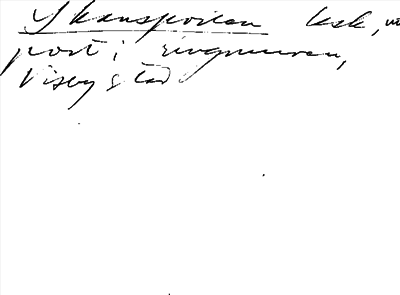 Skansporten
port i ringmuren,
Visby stad